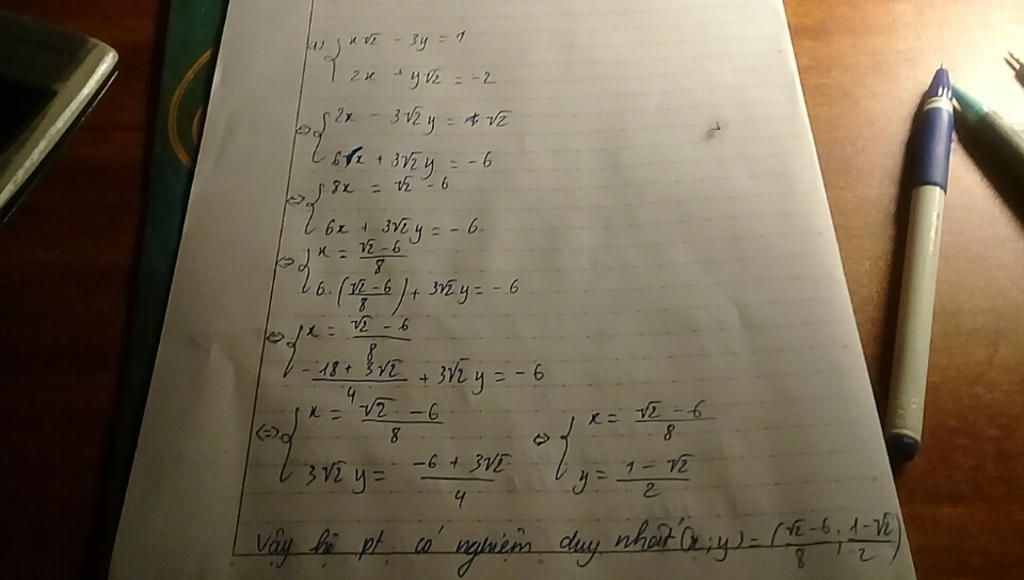 (1) { x√2 - 3y = 1
2x + y√2 = -2
⇔ { 2x - 3√2 y = √2
6x + 3√2 y = -6
⇔ { 8x = √2 - 6
6x + 3√2 y = -6
⇔ { x = (√2 - 6)/8
6.((√2 - 6)/8) + 3√2 y = -6
⇔ { x = (√2 - 6)/8
(-18 + 3√2)/4 + 3√2 y = -6
⇔ { x = (√2 - 6)/8 ⇔ { x = (√2 - 6)/8
3√2 y = (-6 + 3√2)/4 y = (1 - √2)/2
Vậy hệ pt có nghiệm duy nhất (x; y) = ((√2 - 6)/8; (1 - √2)/2)